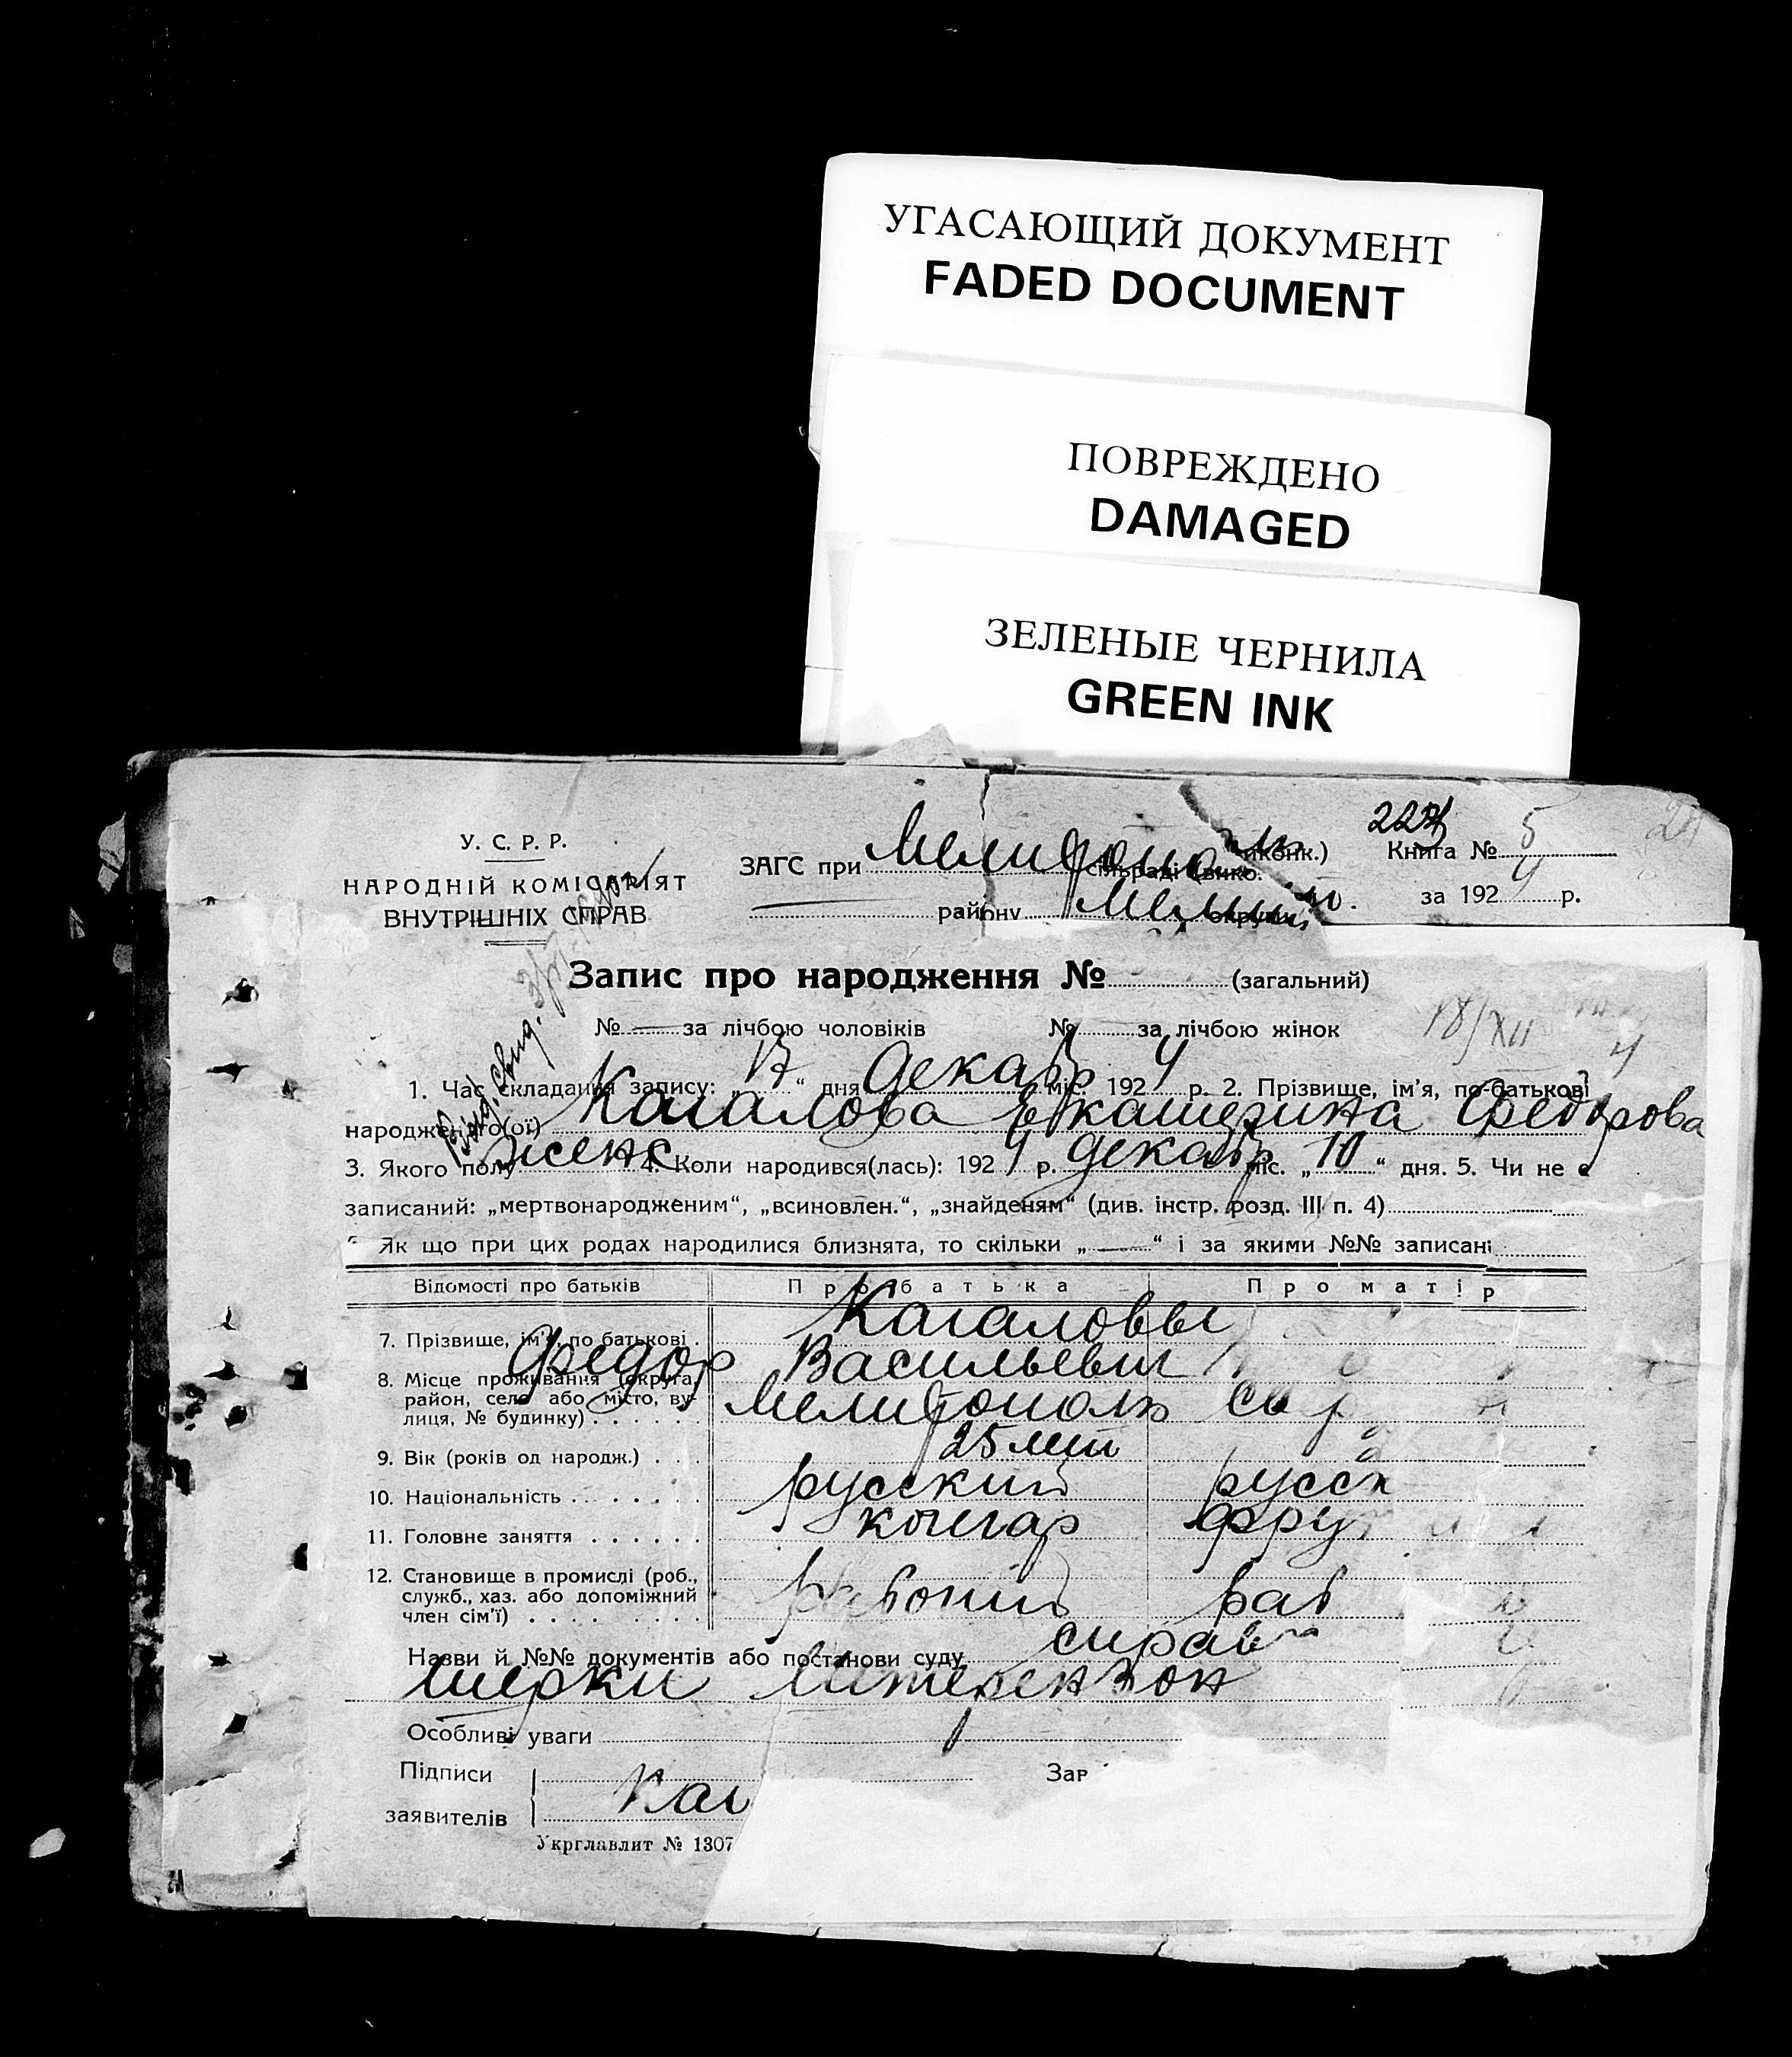 УГАСАЮЩИЙ ДОКУМЕНТ
FADED DOCUMENT
ПОВРЕЖДЕНО
DAMAGED
ЗЕЛЕНЫЕ ЧЕРНИЛА
GREEN INK
У. С. Р. Р.
НАРОДНІЙ КОМІСАРІЯТ
ВНУТРІШНІХ СПРАВ
ЗАГС при Мелитополь сільраді (вико. иконк.)
району Мелит. округи
Книга № 5
за 1924 р.
Запис про народження № (загальний)
№ — за лічбою чоловіків № за лічбою жінок
18/XII
1. Час складання запису: „17“ дня декабр міс. 1924 р. 2. Прізвище, ім’я, по-батькові
народженого(ої) Кагалова Екатерина Федорова
3. Якого полу женс 4. Коли народився(лась): 1924 р. декабр міс. „10“ дня. 5. Чи не є
записаний: „мертвонародженим“, „всиновлен.“, „знайденям“ (див. інстр. розд. III п. 4)
Як що при цих родах народилися близнята, то скільки „—“ і за якими №№ записані
Відомості про батьків Про батька Про матір
7. Прізвище, ім’я, по батькові Кагаловы
Федор Васильевич
8. Місце проживання (округа,
район, село або місто, ву-
лиця, № будинку) Мелитополь
9. Вік (років од народж.) 25 лет
10. Національність русский русск
11. Головне заняття кочегар
12. Становище в промислі (роб.,
служб., хаз. або допоміжний
член сім’ї) рабочий раб
Назви й №№ документів або постанови суду справ
Особливі уваги
Підписи
заявителів Каг
Зар
Укрглавлит № 1307